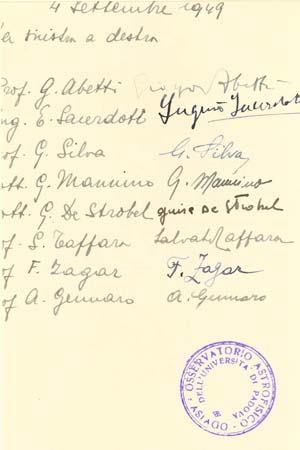 4 settembre 1949
da sinistra a destra
Prof. G. Abetti Giorgio Abetti
ing. E. Sacerdoti Eugenio Sacerdoti
Prof. G. Silva G. Silva
Dott. G. Mannino G. Mannino
Dott. G. De Strobel giusa De Strobel
Prof. S. Taffara Salvat. Taffara
Prof F. Zagar F. Zagar
Prof A. Gennaro A. Gennaro
OSSERVATORIO ASTROFISICO
DELL'UNIVERSITÀ DI PADOVA